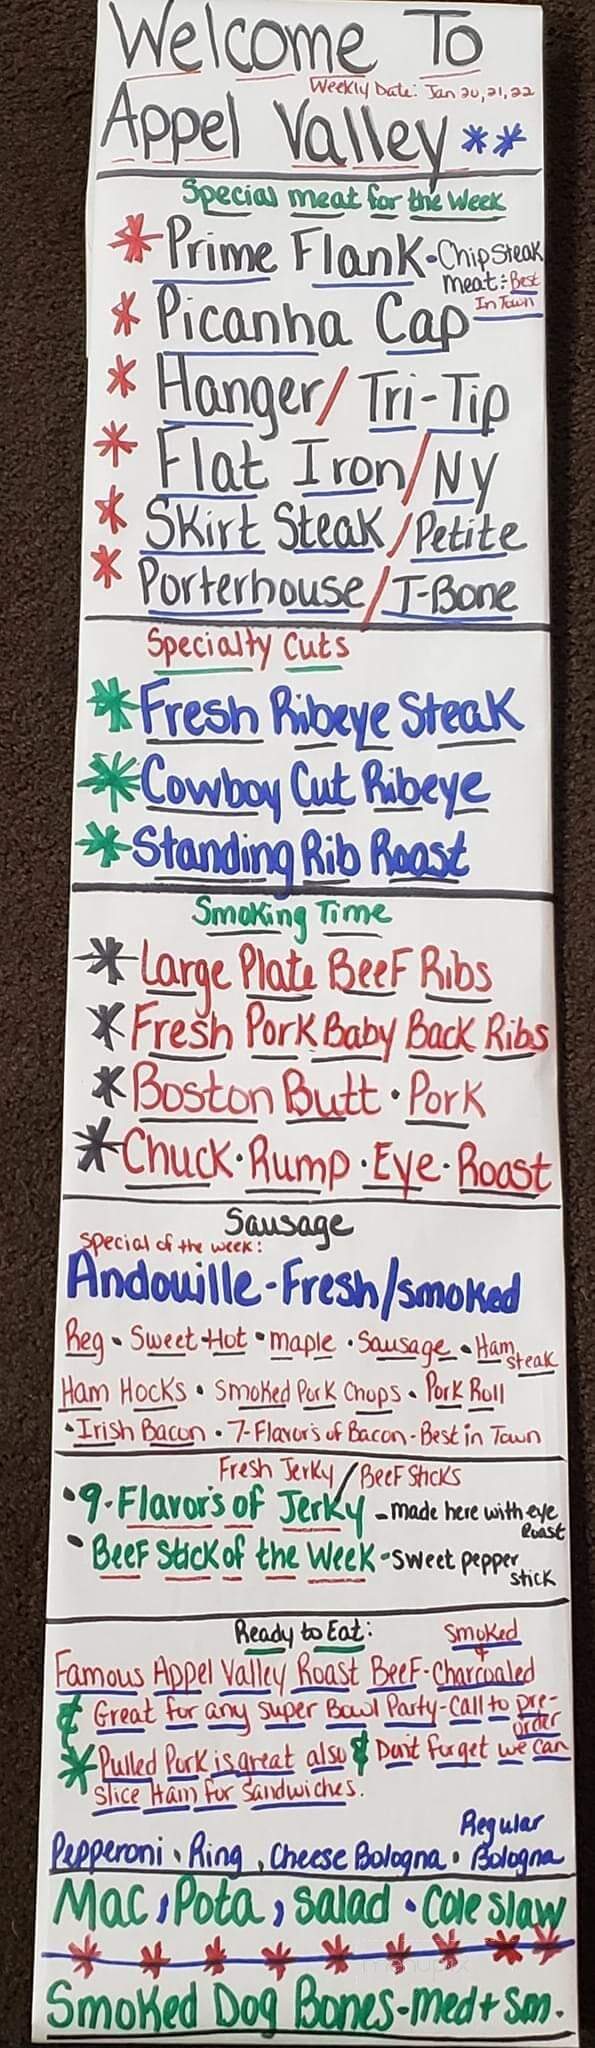 Welcome To
Weekly Date: Jan 20, 21, 22
Appel Valley **
Special meat for the Week
* Prime Flank - Chip Steak
meat: Best
In Town
* Picanha Cap
* Hanger / Tri-Tip
* Flat Iron / Ny
* Skirt Steak / Petite
* Porterhouse / T-Bone
Specialty Cuts
* Fresh Ribeye Steak
* Cowboy Cut Ribeye
* Standing Rib Roast
Smoking Time
* Large Plate Beef Ribs
* Fresh Pork Baby Back Ribs
* Boston Butt · Pork
* Chuck · Rump · Eye · Roast
Sausage
Special of the week:
Andouille - Fresh/smoked
Reg · Sweet-Hot · maple · Sausage · Ham
steak
Ham Hocks · Smoked Pork Chops · Pork Roll
· Irish Bacon · 7-Flavors of Bacon - Best in Town
Fresh Jerky / Beef Sticks
· 9-Flavors of Jerky - made here with eye
Roast
· Beef Stick of the Week - sweet pepper
stick
Ready to Eat: Smoked
&
Famous Appel Valley Roast Beef - Charcoaled
& Great for any super Bowl Party - Call to pre-
order
* Pulled Pork is great also & Don't forget we can
slice Ham for Sandwiches.
Regular
Pepperoni · Ring, Cheese Bologna · Bologna
Mac, Pota, salad · Cole slaw
Smoked Dog Bones - med + Sm.
menupix